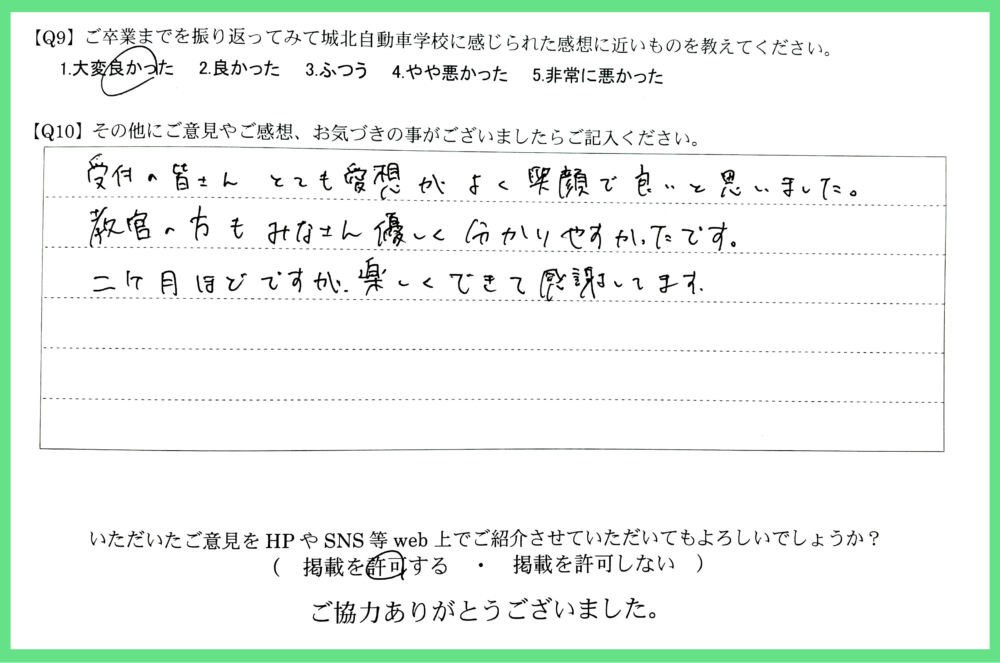 【Q9】ご卒業までを振り返ってみて城北自動車学校に感じられた感想に近いものを教えてください。
1.大変良かった 2.良かった 3.ふつう 4.やや悪かった 5.非常に悪かった
【Q10】その他にご意見やご感想、お気づきの事がございましたらご記入ください。
受付の皆さん とても愛想がよく笑顔で良いと思いました。
教官の方も みなさん優しく分かりやすかったです。
二ヶ月ほどですが、楽しくできて感謝してます。
いただいたご意見をHPやSNS等web上でご紹介させていただいてもよろしいでしょうか？
( 掲載を許可する ・ 掲載を許可しない )
ご協力ありがとうございました。